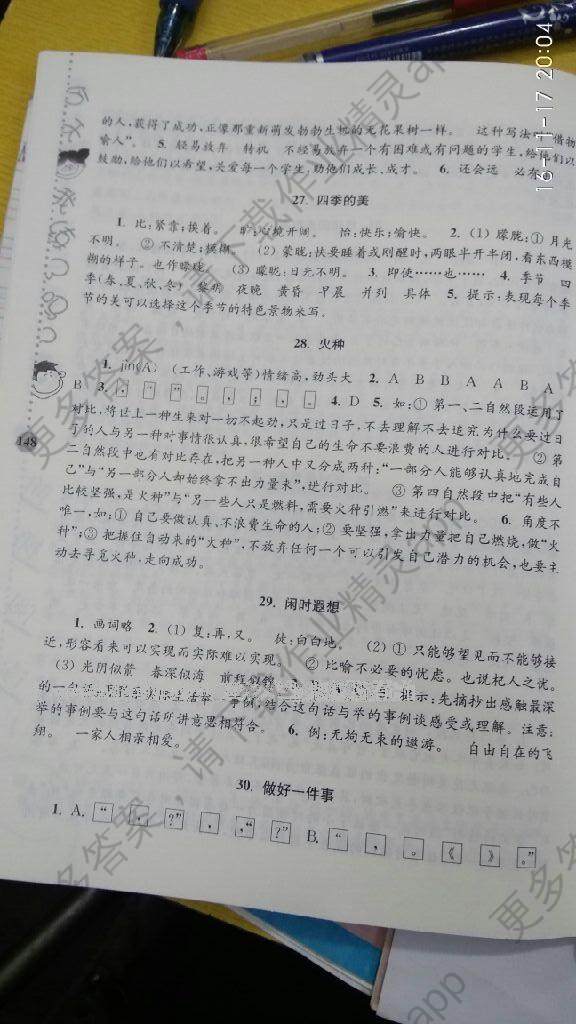 的人,获得了成功,正像那重新萌发勃勃生机的无花果树一样。 这种写法叫"借物
喻人"。 5. 轻易放弃 转机 不轻易放弃一个有困难或有问题的学生,给他们以
鼓励,给他们以希望,关爱每一个学生,助他们成长、成才。 6. 还会远 必有
27. 四季的美
1. 比:紧靠;挨着。 旷:心境开阔。 怡:快乐;愉快。 2. (1) 朦胧:① 月光
不明。 ② 不清楚;模糊。 (2) 蒙眬:快要睡着或刚醒时,两眼半开半闭,看东西模
糊的样子。也作矇眬。 (3) 曚昽:日光不明。 3. 即使……也…… 4. 季节 四
季(春、夏、秋、冬) 黎明 夜晚 黄昏 早晨 并列 具体 5. 提示:表现每个季
节的美可以选择这个季节的特色景物来写。
28. 火种
1. jìn(A) (工作、游戏等)情绪高,劲头大 2. A B B A A B A
B 3. 4. D 5. 如:① 第一、二自然段运用了
对比,将世上一种生来对一切不起劲,只是过日子,不去理解不去追究为什么要过日
子的人与另一种对事情很认真,很希望自己的生命不要浪费的人进行对比。 ② 第
二自然段中也有对比存在,把另一种人中又分成两种:"一部分人能够认真地完成自
己"与"另一部分人却始终拿不出力量来",进行对比。 ③ 第四自然段中把"有些人
比较坚强,是火种"与"另一些人只是燃料,需要火种引燃"来进行对比。 6. 角度不
唯一,如:① 自己要做认真、不浪费生命的人;② 要坚强,拿出力量把自己燃烧,做"火
种";③ 把握住自动来的"火种",不放弃任何一个可以引发自己潜力的机会,也要主
动去寻觅火种,走向成功。
148
29. 闲时遐想
1. 画词略 2. (1) 复:再,又。 徒:白白地。 (2) ① 只能够望见而不能够接
近,形容看来可以实现而实际难以实现。 ② 比喻不必要的忧虑。也说杞人之忧。
(3) 光阴似箭 春深似海 提示:先摘抄出感触最深
的一句话 事例,结合这句话与举的事例谈感受或理解。注意:
举的事例要与这句话所讲意思相符合。 6. 例:无拘无束的遨游。 自由自在的飞
翔。 一家人相亲相爱。
30. 做好一件事
1. A. “ , ?” , ,“ ?” B. “ , 。 《 》 。”
16-11-17 20:04
更多答案,请下载作业精灵app